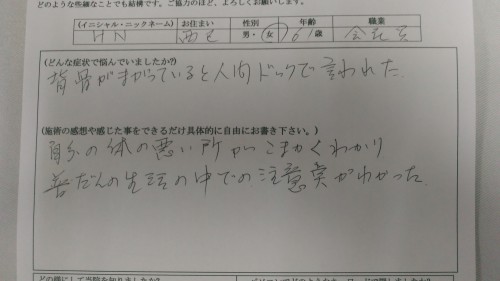 どのような些細なことでも結構です。ご協力のほど、よろしくお願いします。
(イニシャル・ニックネーム) お住まい 性別 年齢 職業
HN 西区 男・女 61歳 会社員
(どんな症状で悩んでいましたか?)
背骨がまがっていると人間ドックで言われた
(施術の感想や感じた事をできるだけ具体的に自由にお書き下さい。)
自分の体の悪い所がこまかくわかり
普だんの生活の中での注意点がわかった。